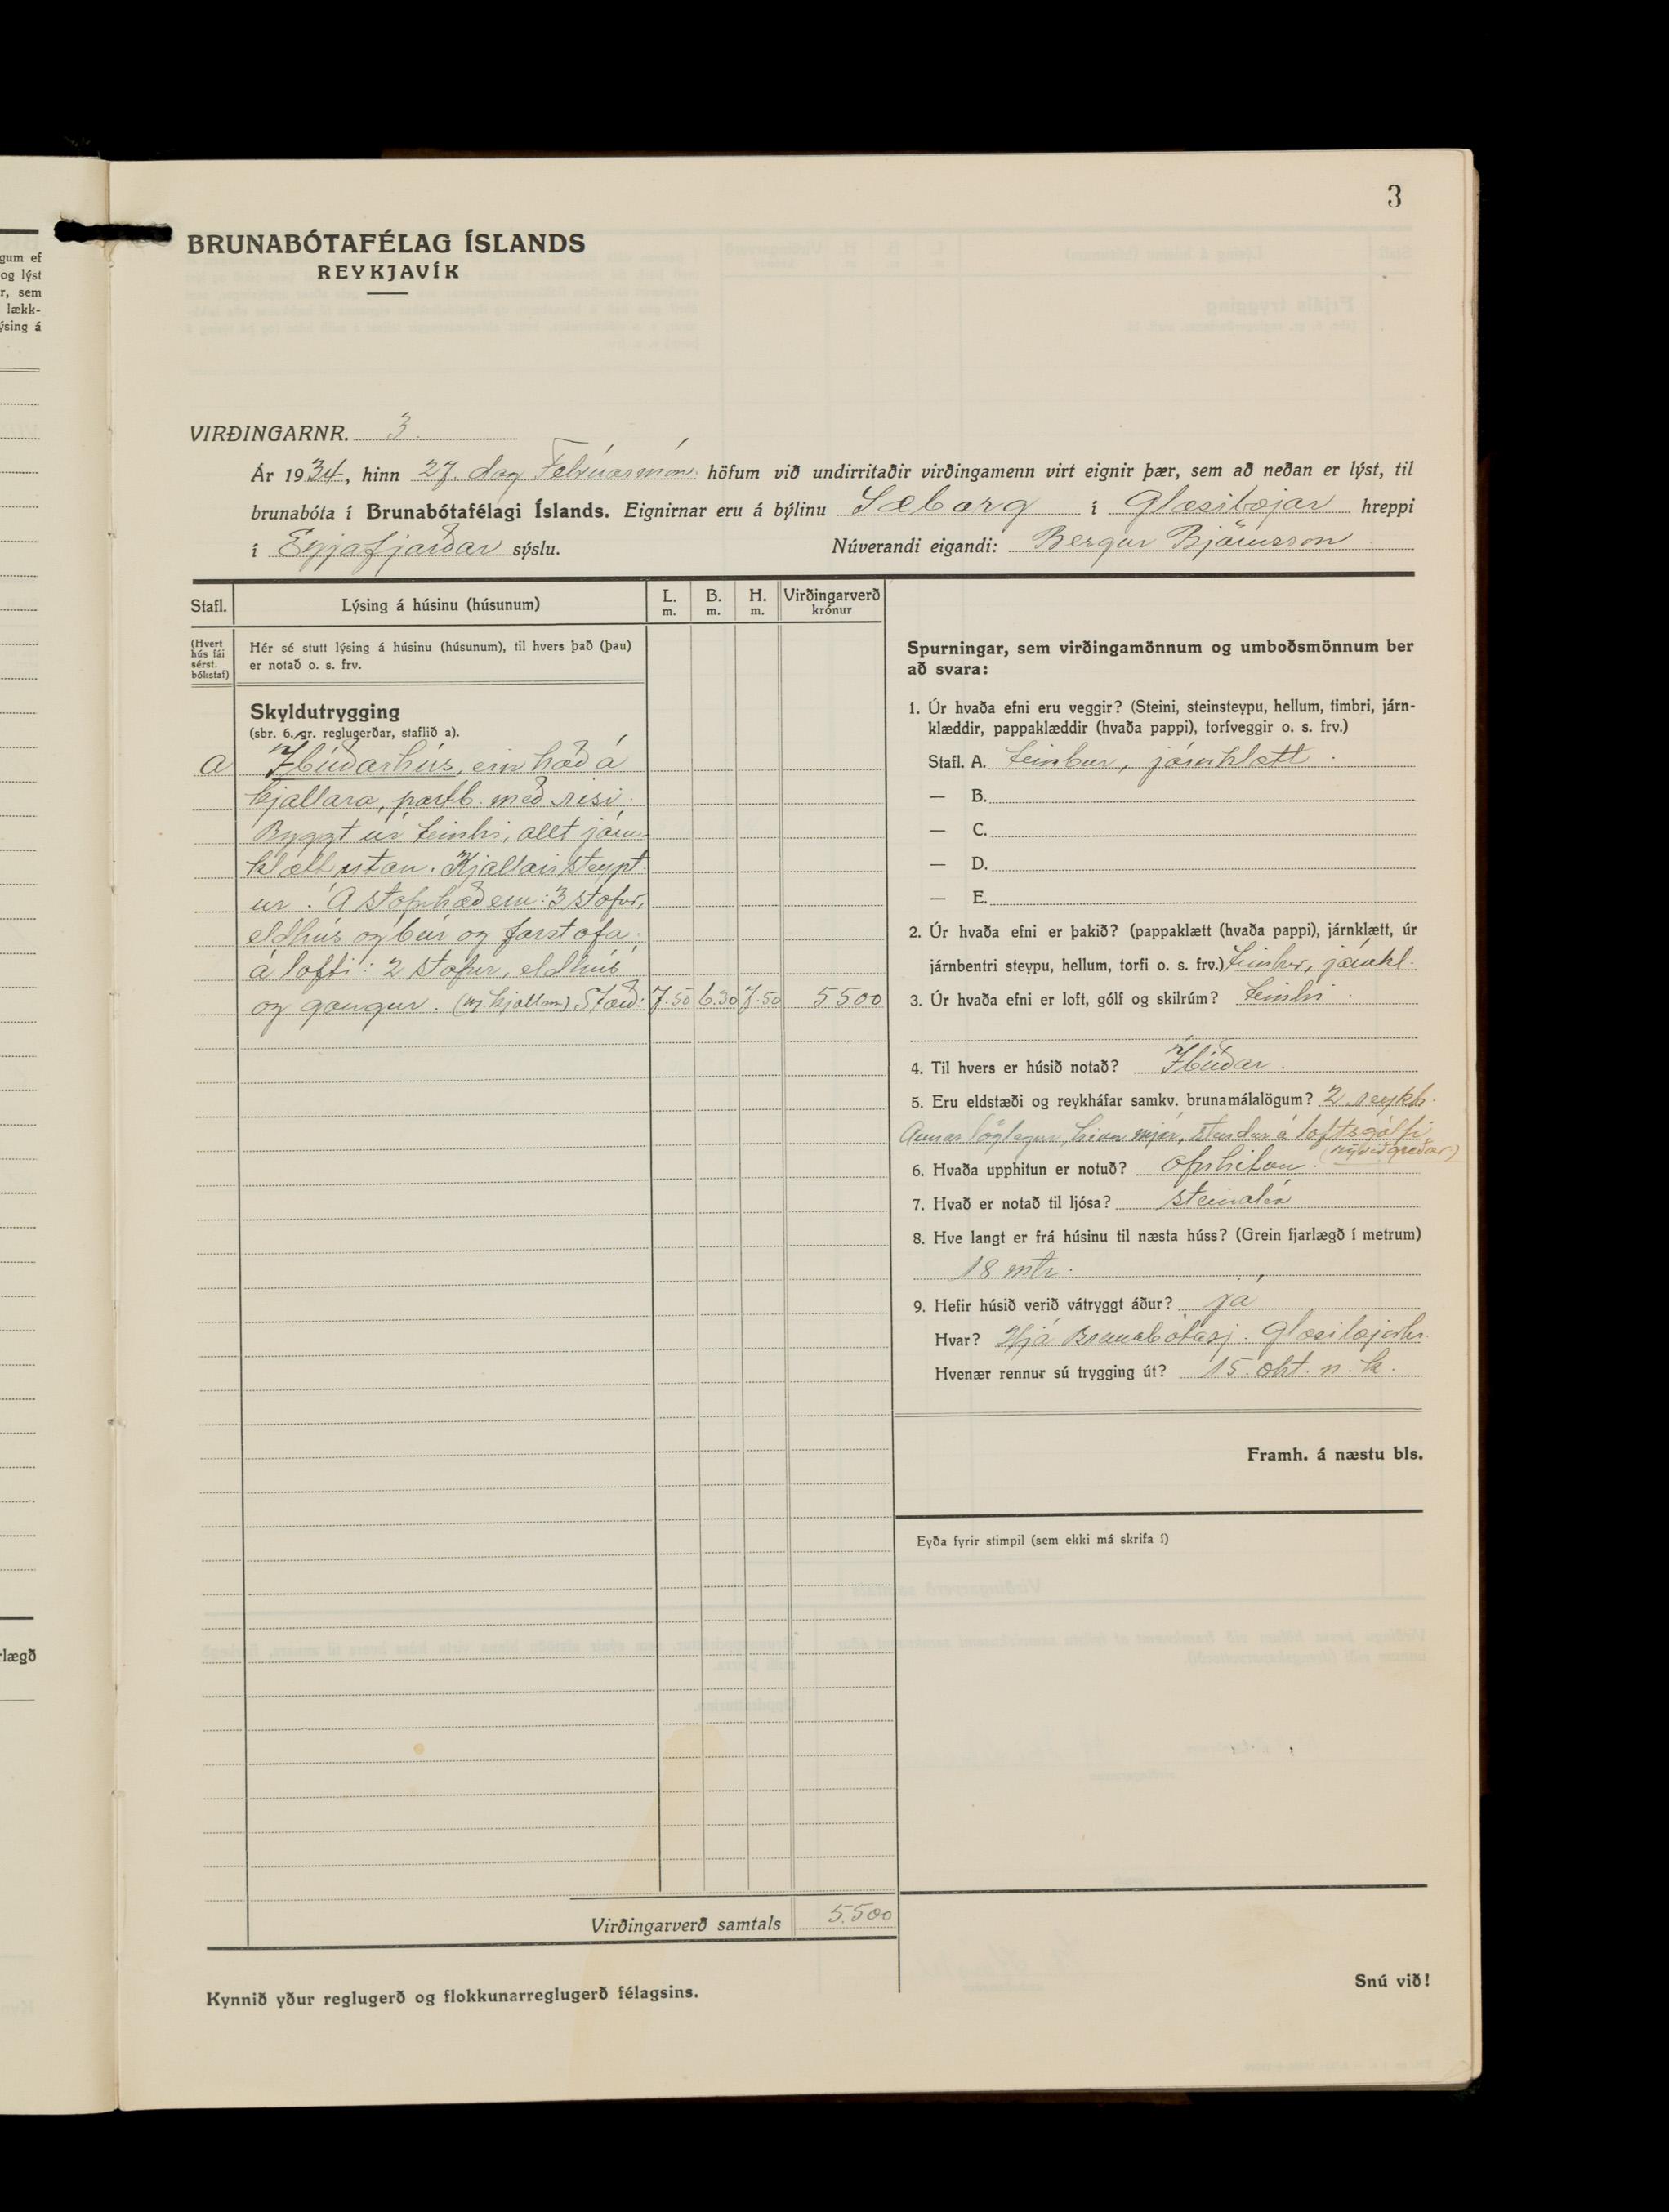 3
gum ef
og lýst
r, sem
lækk-
ýsing á
rlægð
BRUNABÓTAFÉLAG ÍSLANDS
REYKJAVÍK
VIRÐINGARNR. 3.
Ár 1934, hinn 27. dag Febrúarmán. höfum við undirritaðir virðingamenn virt eignir þær, sem að neðan er lýst, til
brunabóta í Brunabótafélagi Íslands. Eignirnar eru á býlinu Sæborg í Glæsibæjar hreppi
í Eyjafjarðar sýslu. Núverandi eigandi: Bergur Björnsson
Stafl. Lýsing á húsinu (húsunum) L. m. B. m. H. m. Virðingarverð krónur
(Hvert hús fái sérst. bókstaf)
Hér sé stutt lýsing á húsinu (húsunum), til hvers það (þau)
er notað o. s. frv.
Skyldutrygging
(sbr. 6. gr. reglugerðar, staflið a).
a Íbúðarhús, ein hæð á
kjallara, portb. með risi.
Byggt úr timbri, allt járn-
klætt utan. Kjallari steypt-
ur. Á stofuhæð eru: 3 stofur,
eldhús og búr og forstofa.
á lofti: 2 stofur, eldhús
og gangur. (m. kjallara) Stærð: 7.50 6.30 7.50 5500
Virðingarverð samtals 5.500
Kynnið yður reglugerð og flokkunarreglugerð félagsins.
Spurningar, sem virðingamönnum og umboðsmönnum ber
að svara:
1. Úr hvaða efni eru veggir? (Steini, steinsteypu, hellum, timbri, járn-
klæddir, pappaklæddir (hvaða pappi), torfveggir o. s. frv.)
Stafl. A. timbur, járnklætt.
— B.
— C.
— D.
— E.
2. Úr hvaða efni er þakið? (pappaklætt (hvaða pappi), járnklætt, úr
járnbentri steypu, hellum, torfi o. s. frv.) timbur, járnkl.
3. Úr hvaða efni er loft, gólf og skilrúm? timbri.
4. Til hvers er húsið notað? Íbúðar.
5. Eru eldstæði og reykháfar samkv. brunamálalögum? 2 reykh.
Annar löglegur, hinn mjór, stendur á loftsgólfi
6. Hvaða upphitun er notuð? ofnhitun.
7. Hvað er notað til ljósa? steinolía
8. Hve langt er frá húsinu til næsta húss? (Grein fjarlægð í metrum)
18 mtr.
9. Hefir húsið verið vátryggt áður? já
Hvar? Hjá Brunabótasj. Glæsibæjarhr.
Hvenær rennur sú trygging út? 15. okt. n. k.
Framh. á næstu bls.
Eyða fyrir stimpil (sem ekki má skrifa í)
Snú við!